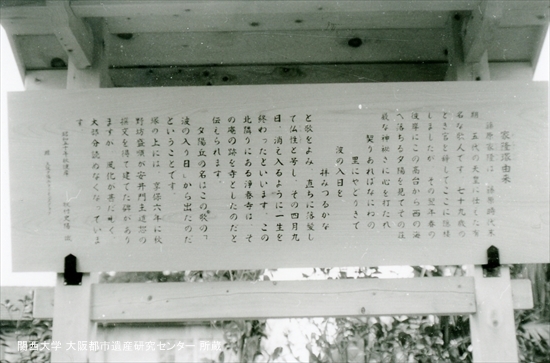 家隆塚由来
藤原家隆は、藤原時代末
頃、五代の天皇に仕えた有
名な歌人です。七十九歳の
とき宮を辞してここに隠棲
しましたが、その翌年春の
彼岸にこの高台から西の海
へ落ちる夕陽を見てその荘
厳な神秘さに心を打たれ
契りあればなにわの
里にやどりきて
波の入日を
拝みつるかな
と歌をよみ、直ちに落髪し
て仏性と号し、その四月九
日、消え入るように一生を
終わったといいます。この
北隣りにある浄春寺は、そ
の庵の跡を寺としたのだと
伝えられます。
夕陽丘の名はこの歌の「
波の入り日」から出たのだ
ということです。
塚の上には、享保六年に秋
野坊盛順が安井門主道恕の
撰文を得て建てた碑があり
ますが、風化が甚だしく、
大部分読めなくなっていま
す。
関西大学 大阪都市遺産研究センター 所蔵